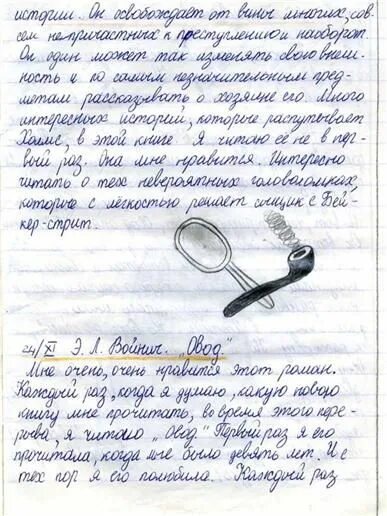 истории. Он освобождает от вины многих, сов-
сем не причастных к преступлению и наоборот.
Он один может так изменять свою внеш-
ность и по самым незначительным пред-
метам рассказывать о хозяине его. Много
интересных истории, которые распутывает
Холмс, в этой книге. Я читаю её не в пер-
вый раз. Она мне нравится. Интересно
читать о тех невероятных головоломках,
которые с лёгкостью решает сыщик с Бей-
кер-стрит.
24/XI Э. Л. Войнич. „Овод."
Мне очень, очень нравится этот роман.
Каждый раз, когда я думаю, какую новую
книгу мне прочитать, во время этого пере-
рыва, я читаю „Овод." Первый раз я его
прочитала, когда мне было девять лет. И с
тех пор я его полюбила. Каждый раз